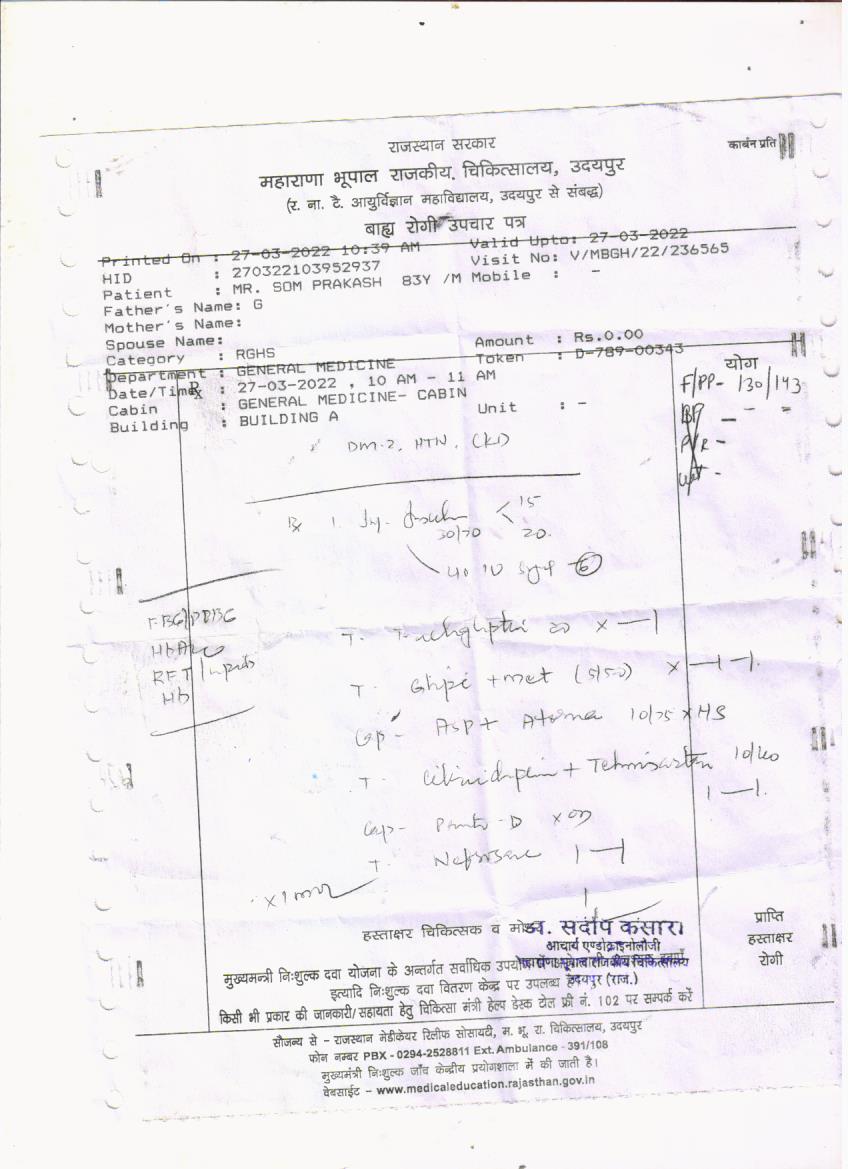 राजस्थान सरकार
कार्बन प्रति
महाराणा भूपाल राजकीय. चिकित्सालय, उदयपुर
(र. ना. टै. आयुर्विज्ञान महाविद्यालय, उदयपुर से संबद्ध)
बाह्य रोगी उपचार पत्र
Printed On : 27-03-2022 10:39 AM Valid Upto: 27-03-2022
HID : 270322103952937 Visit No: V/MBGH/22/236565
Patient : MR. SOM PRAKASH 83Y /M Mobile : -
Father's Name: G
Mother's Name:
Spouse Name:
Category : RGHS Amount : Rs.0.00
Department : GENERAL MEDICINE Token : D-789-00343
Date/Time : 27-03-2022 , 10 AM - 11 AM
Rx
Cabin : GENERAL MEDICINE- CABIN
Building : BUILDING A Unit : -
योग
F/PP- 130/143
BP -
P/R -
DM-2, HTN, CKD
Rx 1. Inj. 30/70 < 15 20
40 IU Syr 6
FBG/PPBG
HbA1c
RFT/Lipids
Hb
T. 20 x —1
T. Glipi + met (5/500) x —1—1.
Cap- Asp + Atorva 10/75 x HS
T. Cilnidipin + Telmisartan 10/40
1 —1.
Cap- Panto-D x OD
T. Nefrosave 1 —1
हस्ताक्षर चिकित्सक व
डॉ. संदीप कंसारा
आचार्य एण्डोक्राइनोलॉजी
प्राप्ति
हस्ताक्षर
रोगी
मुख्यमन्त्री निःशुल्क दवा योजना के अन्तर्गत सर्वाधिक
उदयपुर (राज.)
इत्यादि निःशुल्क दवा वितरण केन्द्र पर उपलब्ध
किसी भी प्रकार की जानकारी/सहायता हेतु चिकित्सा मंत्री हेल्प डेस्क टोल फ्री नं. 102 पर सम्पर्क करें
सौजन्य से - राजस्थान मेडीकेयर रिलीफ सोसायटी, म. भू. रा. चिकित्सालय, उदयपुर
फोन नम्बर PBX - 0294-2528811 Ext. Ambulance - 391/108
मुख्यमंत्री निःशुल्क जाँच केन्द्रीय प्रयोगशाला में की जाती है।
वेबसाईट - www.medicaleducation.rajasthan.gov.in